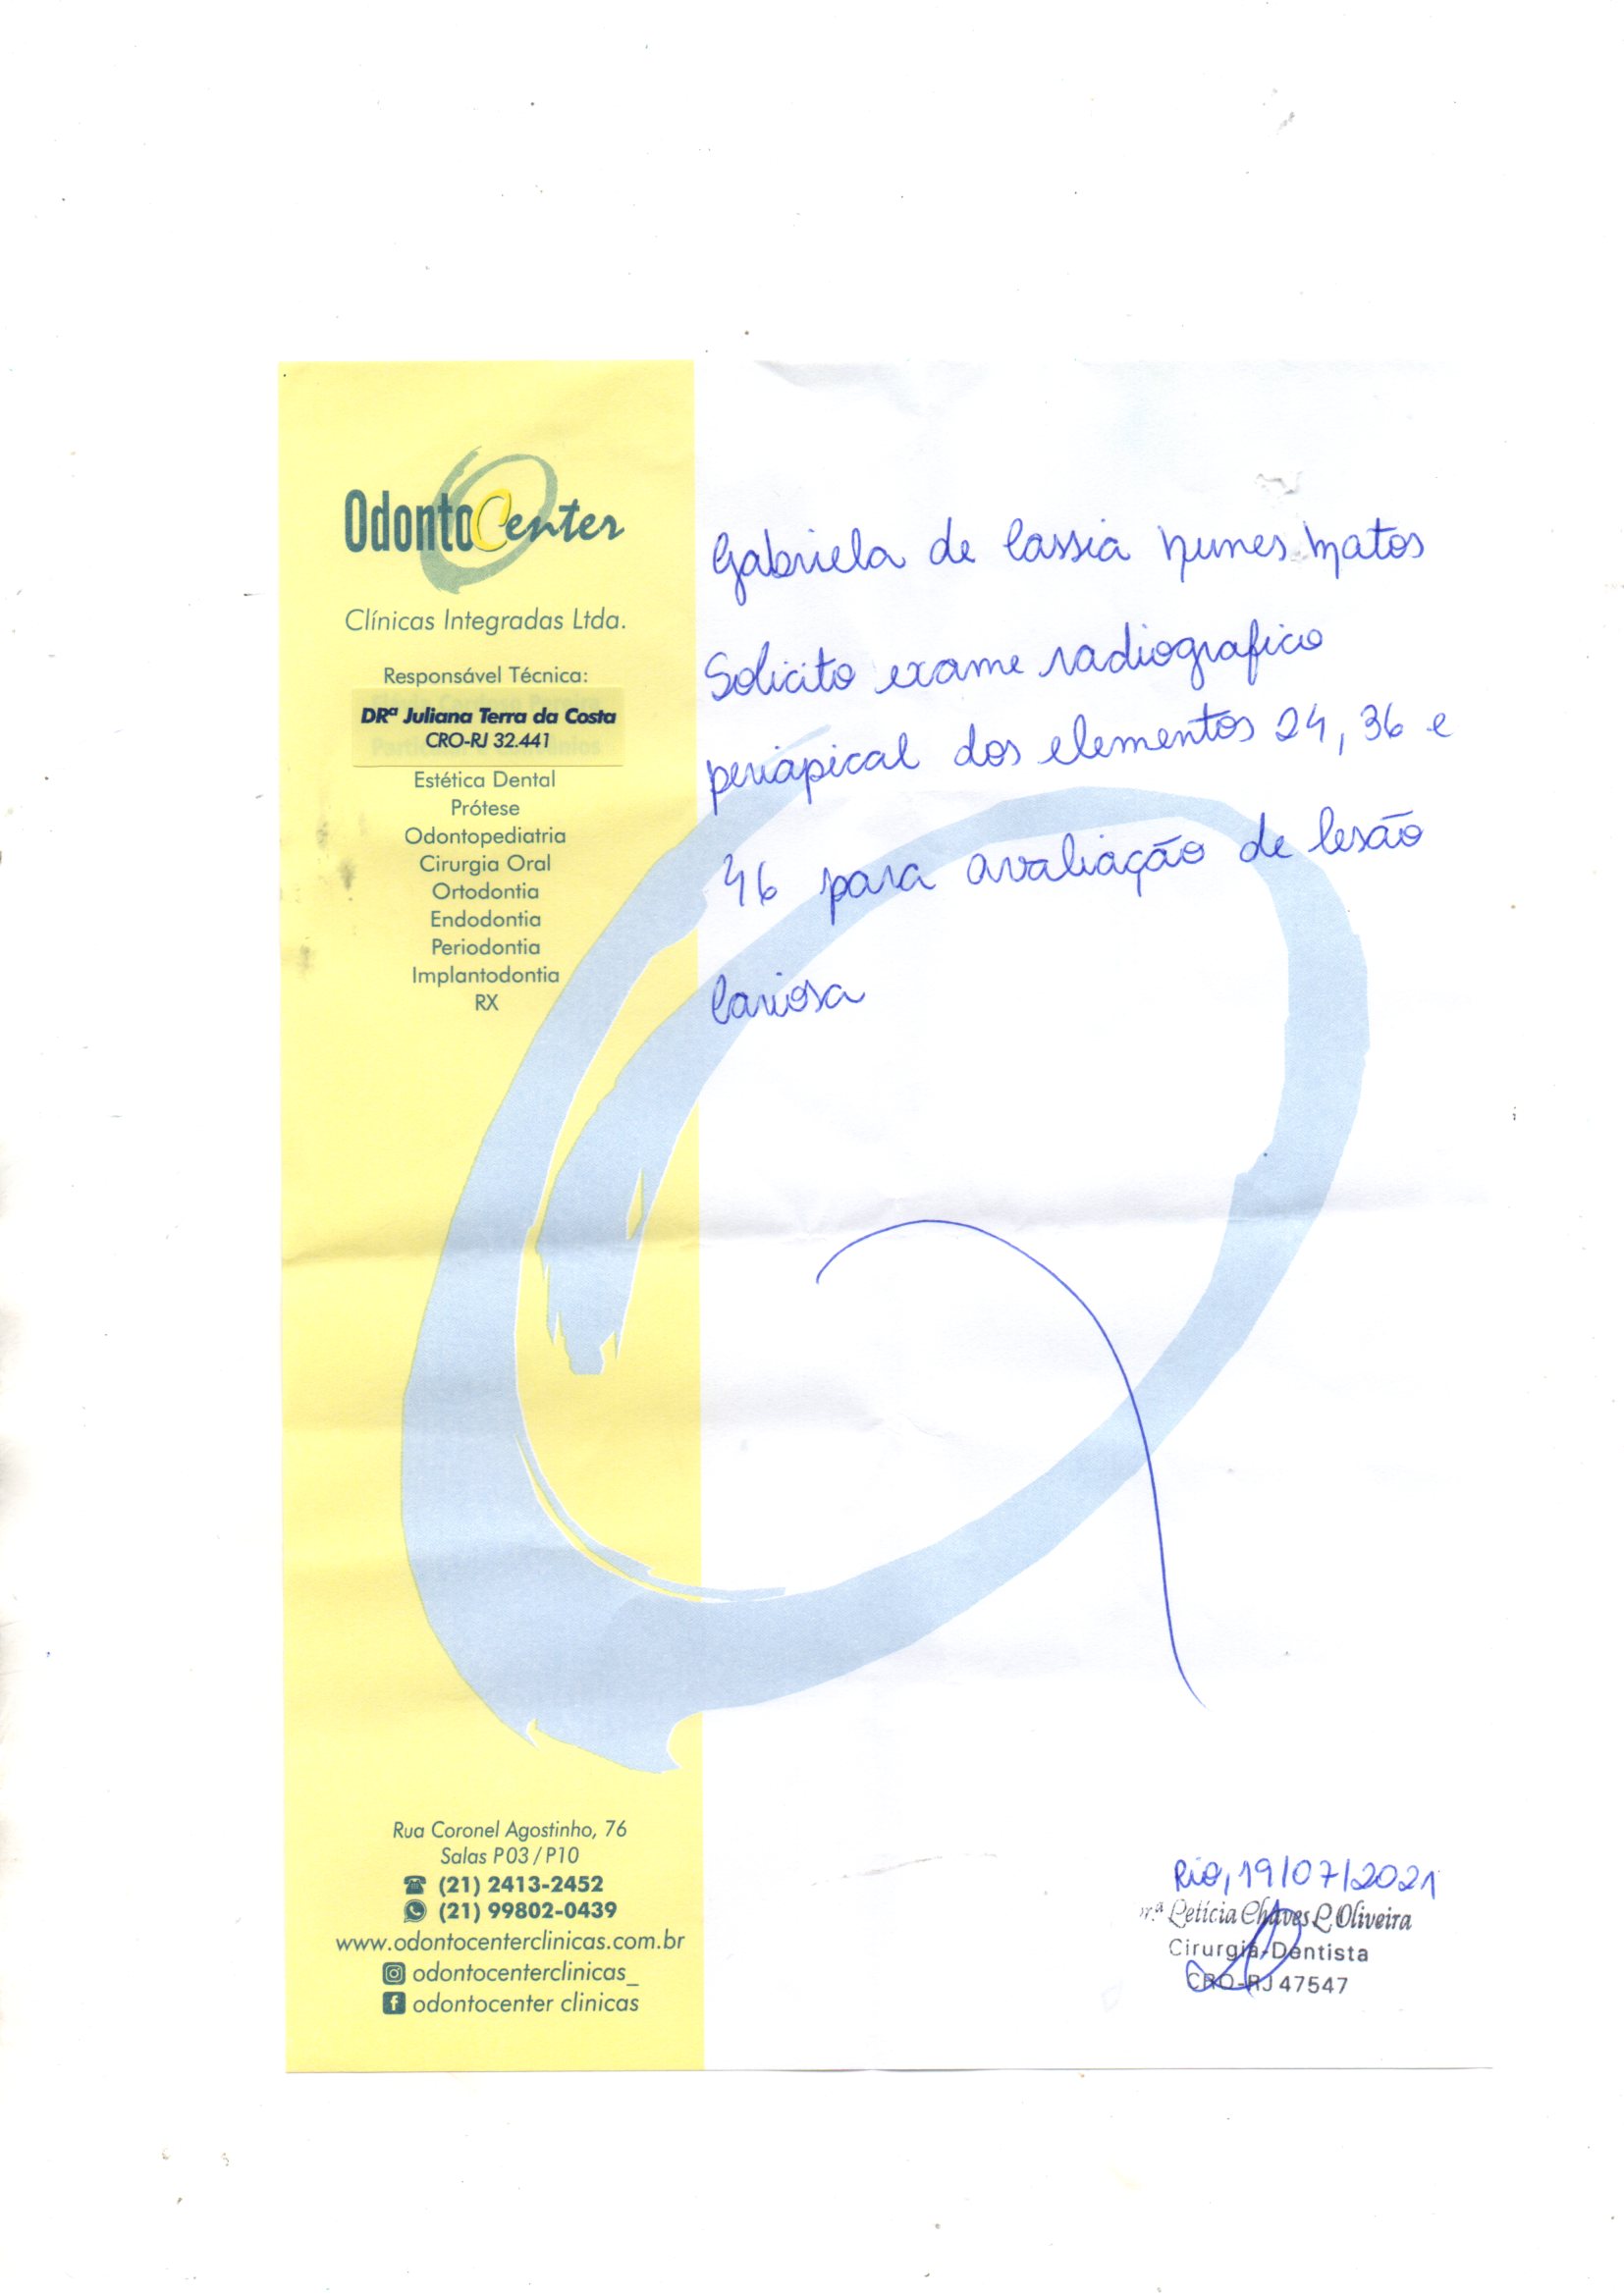 OdontoCenter
Clínicas Integradas Ltda.
Responsável Técnica:
DRª Juliana Terra da Costa
CRO-RJ 32.441
Estética Dental
Prótese
Odontopediatria
Cirurgia Oral
Ortodontia
Endodontia
Periodontia
Implantodontia
RX
Gabriela de Cassia Nunes Matos
Solicito exame radiografico
periapical dos elementos 24, 36 e
46 para avaliação de lesão
Cariosa
Rua Coronel Agostinho, 76
Salas P03 / P10
(21) 2413-2452
(21) 99802-0439
www.odontocenterclinicas.com.br
odontocenterclinicas_
odontocenter clinicas
Rio, 19/07/2021
Letícia Chaves L. Oliveira
Cirurgiã-Dentista
CRO-RJ 47547